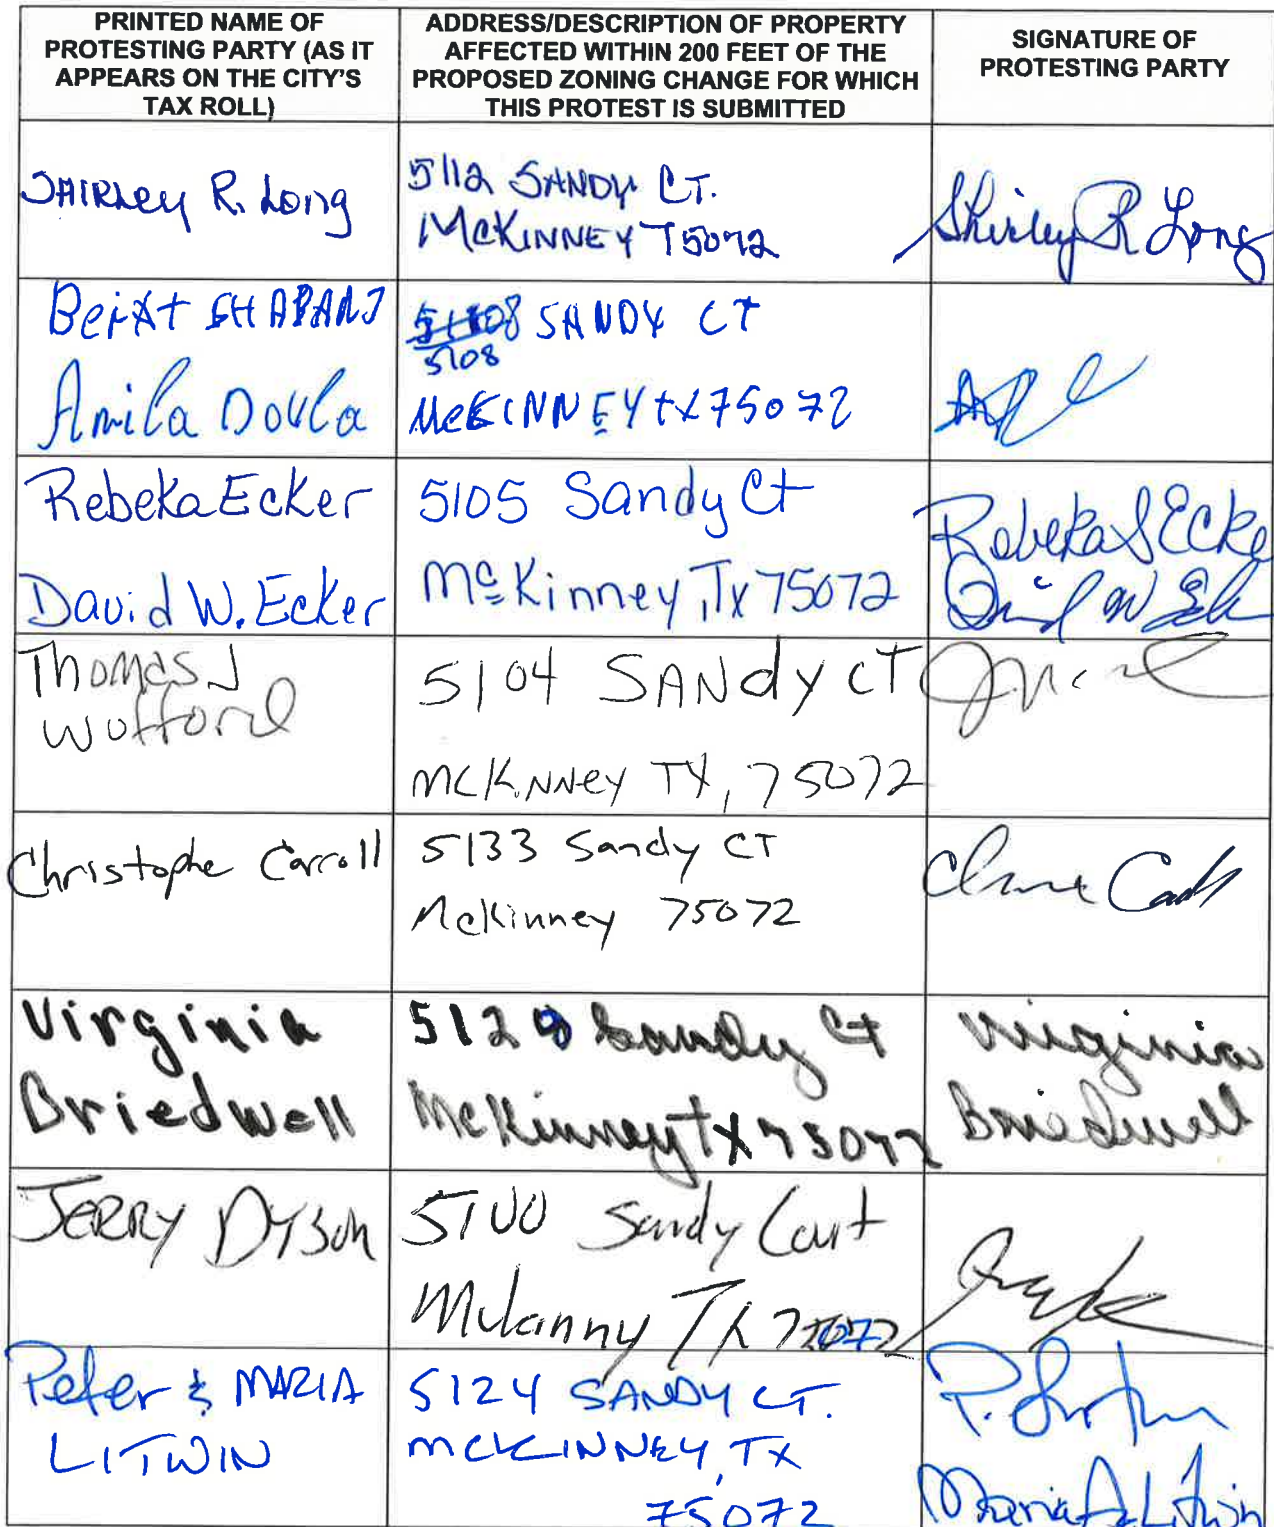 PRINTED NAME OF
PROTESTING PARTY (AS IT
APPEARS ON THE CITY'S
TAX ROLL)
ADDRESS/DESCRIPTION OF PROPERTY
AFFECTED WITHIN 200 FEET OF THE
PROPOSED ZONING CHANGE FOR WHICH
THIS PROTEST IS SUBMITTED
SIGNATURE OF
PROTESTING PARTY
SHIRLey R. Long
5112 SANDY CT.
McKINNEY 75072
Shirley R Long
SHABANJ
SANDY CT
5108
Amila Doula
McKINNEY tx 75072
Rebeka Ecker
5105 Sandy Ct
Rebeka S Ecke
David W. Ecker
McKinney, Tx 75072
Thomas J
Wofford
5104 SANdy CT
McKNNey TX, 75072
Christophe Carroll
5133 Sandy CT
McKinney 75072
Virginia
Briedwell
5128 Sandy Ct
McKinney Tx 75072
Virginia
Briedwell
JERRY DYSon
5100 Sandy Court
TX 75072
Peter & MARIA
LITWIN
5124 SANDY CT.
McKINNEY, TX
75072
P. Litwin
Maria A. Litwin